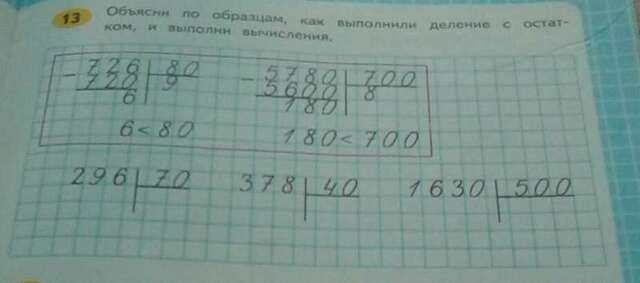 13 Объясни по образцам, как выполнили деление с остат-
ком, и выполни вычисления.
- 726 80
720 9
6
6 < 80
- 5780 700
5600 8
180
180 < 700
296 70
378 40
1630 500